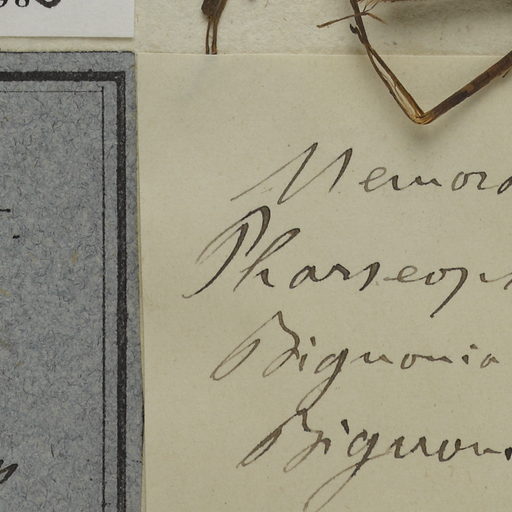 Nemoro
Pharseop
Bignonia
Bignon